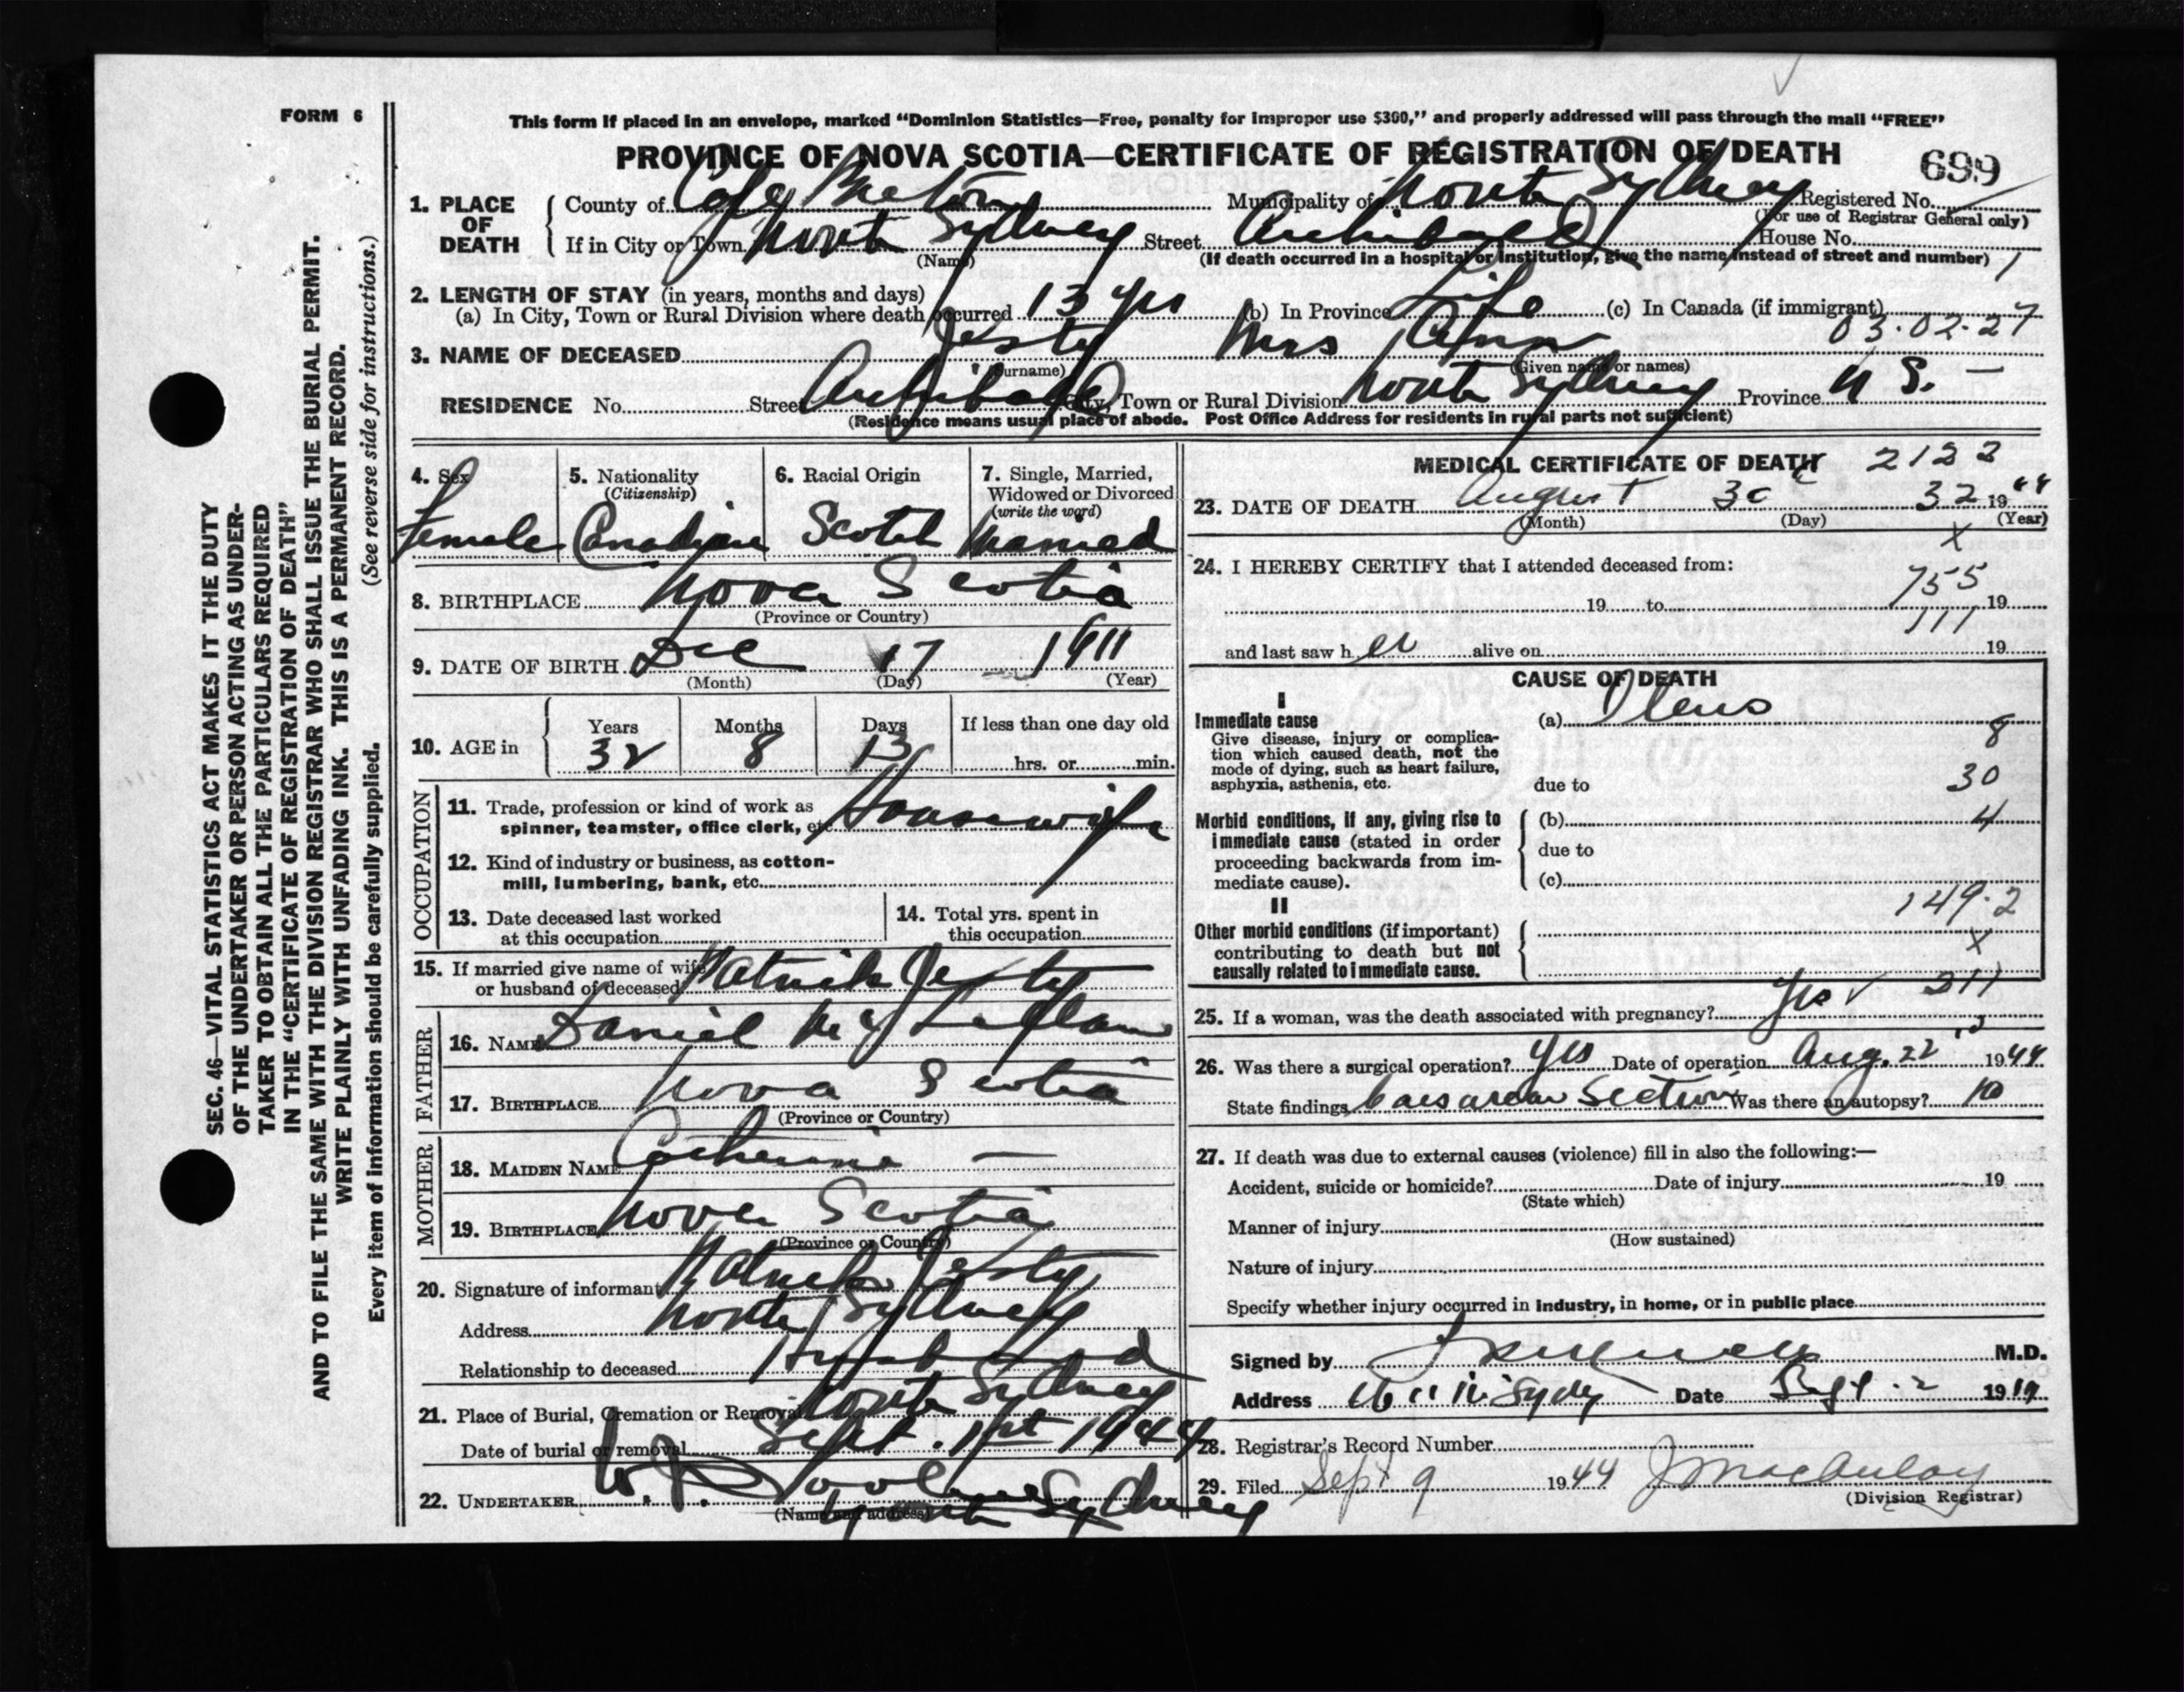 FORM 6
This form if placed in an envelope, marked “Dominion Statistics—Free, penalty for improper use $300,” and properly addressed will pass through the mail “FREE”
PROVINCE OF NOVA SCOTIA—CERTIFICATE OF REGISTRATION OF DEATH
699
1. PLACE OF DEATH
County of Cape Breton Municipality of North Sydney Registered No.
(For use of Registrar General only)
If in City or Town North Sydney Street Archibald House No.
(Name) (If death occurred in a hospital or institution, give the name instead of street and number) 1
2. LENGTH OF STAY (in years, months and days)
(a) In City, Town or Rural Division where death occurred 13 yrs (b) In Province Life (c) In Canada (if immigrant)
03.02.27
3. NAME OF DECEASED Jesty Mrs Ann
(Surname) (Given name or names)
RESIDENCE No. Street Archibald City, Town or Rural Division North Sydney Province N S. —
(Residence means usual place of abode. Post Office Address for residents in rural parts not sufficient)
4. Sex 5. Nationality (Citizenship) 6. Racial Origin 7. Single, Married, Widowed or Divorced (write the word)
Female Canadian Scotch Married
8. BIRTHPLACE Nova Scotia
(Province or Country)
9. DATE OF BIRTH Dec 17 1911
(Month) (Day) (Year)
10. AGE in Years Months Days If less than one day old
32 8 13 hrs. or min.
OCCUPATION
11. Trade, profession or kind of work as spinner, teamster, office clerk, etc. Housewife
12. Kind of industry or business, as cotton-mill, lumbering, bank, etc.
13. Date deceased last worked at this occupation
14. Total yrs. spent in this occupation
15. If married give name of wife or husband of deceased Patrick Jesty
FATHER
16. NAME Daniel
17. BIRTHPLACE Nova Scotia
(Province or Country)
MOTHER
18. MAIDEN NAME Catherine —
19. BIRTHPLACE Nova Scotia
(Province or Country)
20. Signature of informant Patrick Jesty
Address North Sydney
Relationship to deceased Husband
21. Place of Burial, Cremation or Removal North Sydney
Date of burial or removal Sept. 1st 1944
22. UNDERTAKER W. J. Dooley
North Sydney
(Name and address)
MEDICAL CERTIFICATE OF DEATH 2122
23. DATE OF DEATH August 30th 32 1944
(Month) (Day) (Year)
X
24. I HEREBY CERTIFY that I attended deceased from:
755
19 to 19
111
and last saw h er alive on 19
CAUSE OF DEATH
I
Immediate cause
Give disease, injury or complication which caused death, not the mode of dying, such as heart failure, asphyxia, asthenia, etc.
(a) Ileus
8
due to 30
Morbid conditions, if any, giving rise to immediate cause (stated in order proceeding backwards from immediate cause).
(b) 4
due to
(c)
149.2
II
Other morbid conditions (if important) contributing to death but not causally related to immediate cause.
X
25. If a woman, was the death associated with pregnancy? Yes ✓ 211
26. Was there a surgical operation? Yes Date of operation Aug. 22 1944
State findings Caesarean Section Was there an autopsy? no
27. If death was due to external causes (violence) fill in also the following:—
Accident, suicide or homicide? Date of injury 19
(State which)
Manner of injury
(How sustained)
Nature of injury
Specify whether injury occurred in industry, in home, or in public place
Signed by M.D.
Address Date Sept. 2 19
28. Registrar's Record Number
29. Filed Sept 9 1944 J Macaulay
(Division Registrar)
SEC. 46—VITAL STATISTICS ACT MAKES IT THE DUTY
OF THE UNDERTAKER OR PERSON ACTING AS UNDER-
TAKER TO OBTAIN ALL THE PARTICULARS REQUIRED
IN THE “CERTIFICATE OF REGISTRATION OF DEATH”
AND TO FILE THE SAME WITH THE DIVISION REGISTRAR WHO SHALL ISSUE THE BURIAL PERMIT.
WRITE PLAINLY WITH UNFADING INK. THIS IS A PERMANENT RECORD.
Every item of information should be carefully supplied. (See reverse side for instructions.)